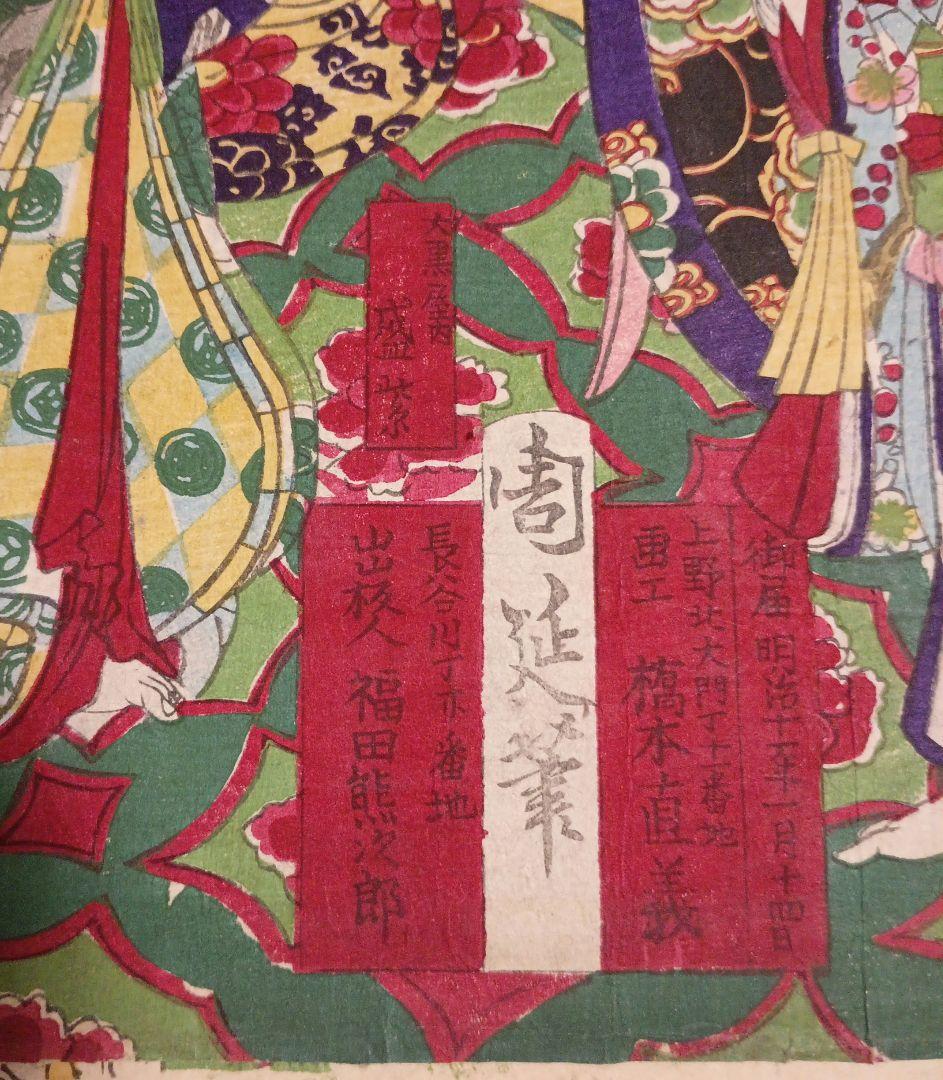 御届明治十五年一月十四日
上野北大門丁十一番地
画工 橋本直義
周延筆
長谷川丁亦番地
出板人 福田熊次郎
大黒屋内
盛紫